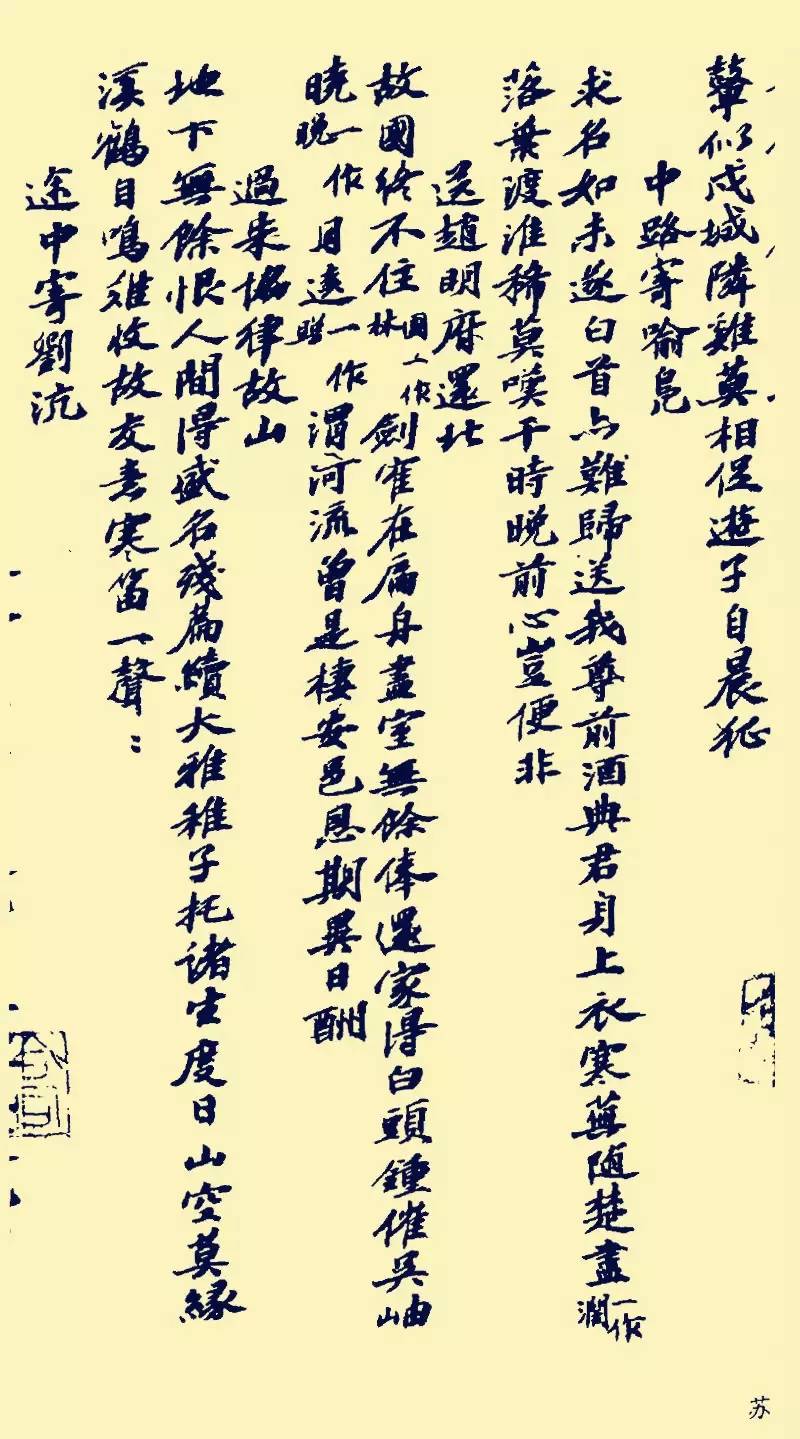 鼙似戍城隣雞莫相促遊子自晨征
中路寄喻凫
求名如未遂白首亦難歸送我尊前酒典君身上衣寒蕪隨楚盡一作濶
落葉渡淮稀莫嘆干時晚前心豈便非
送趙明府還北
故國終不住園一作林劍隺在扁舟盡室無餘俸還家得白頭鍾催吳岫
曉一作晚月遶一作照渭河流曾是棲安邑恩期異日酬
過朱協律故山
地下無餘恨人間得盛名殘篇續大雅稚子托諸生度日山空莫緣
溪鶴自鳴誰收故友書寒笛一聲：
途中寄劉沆
苏